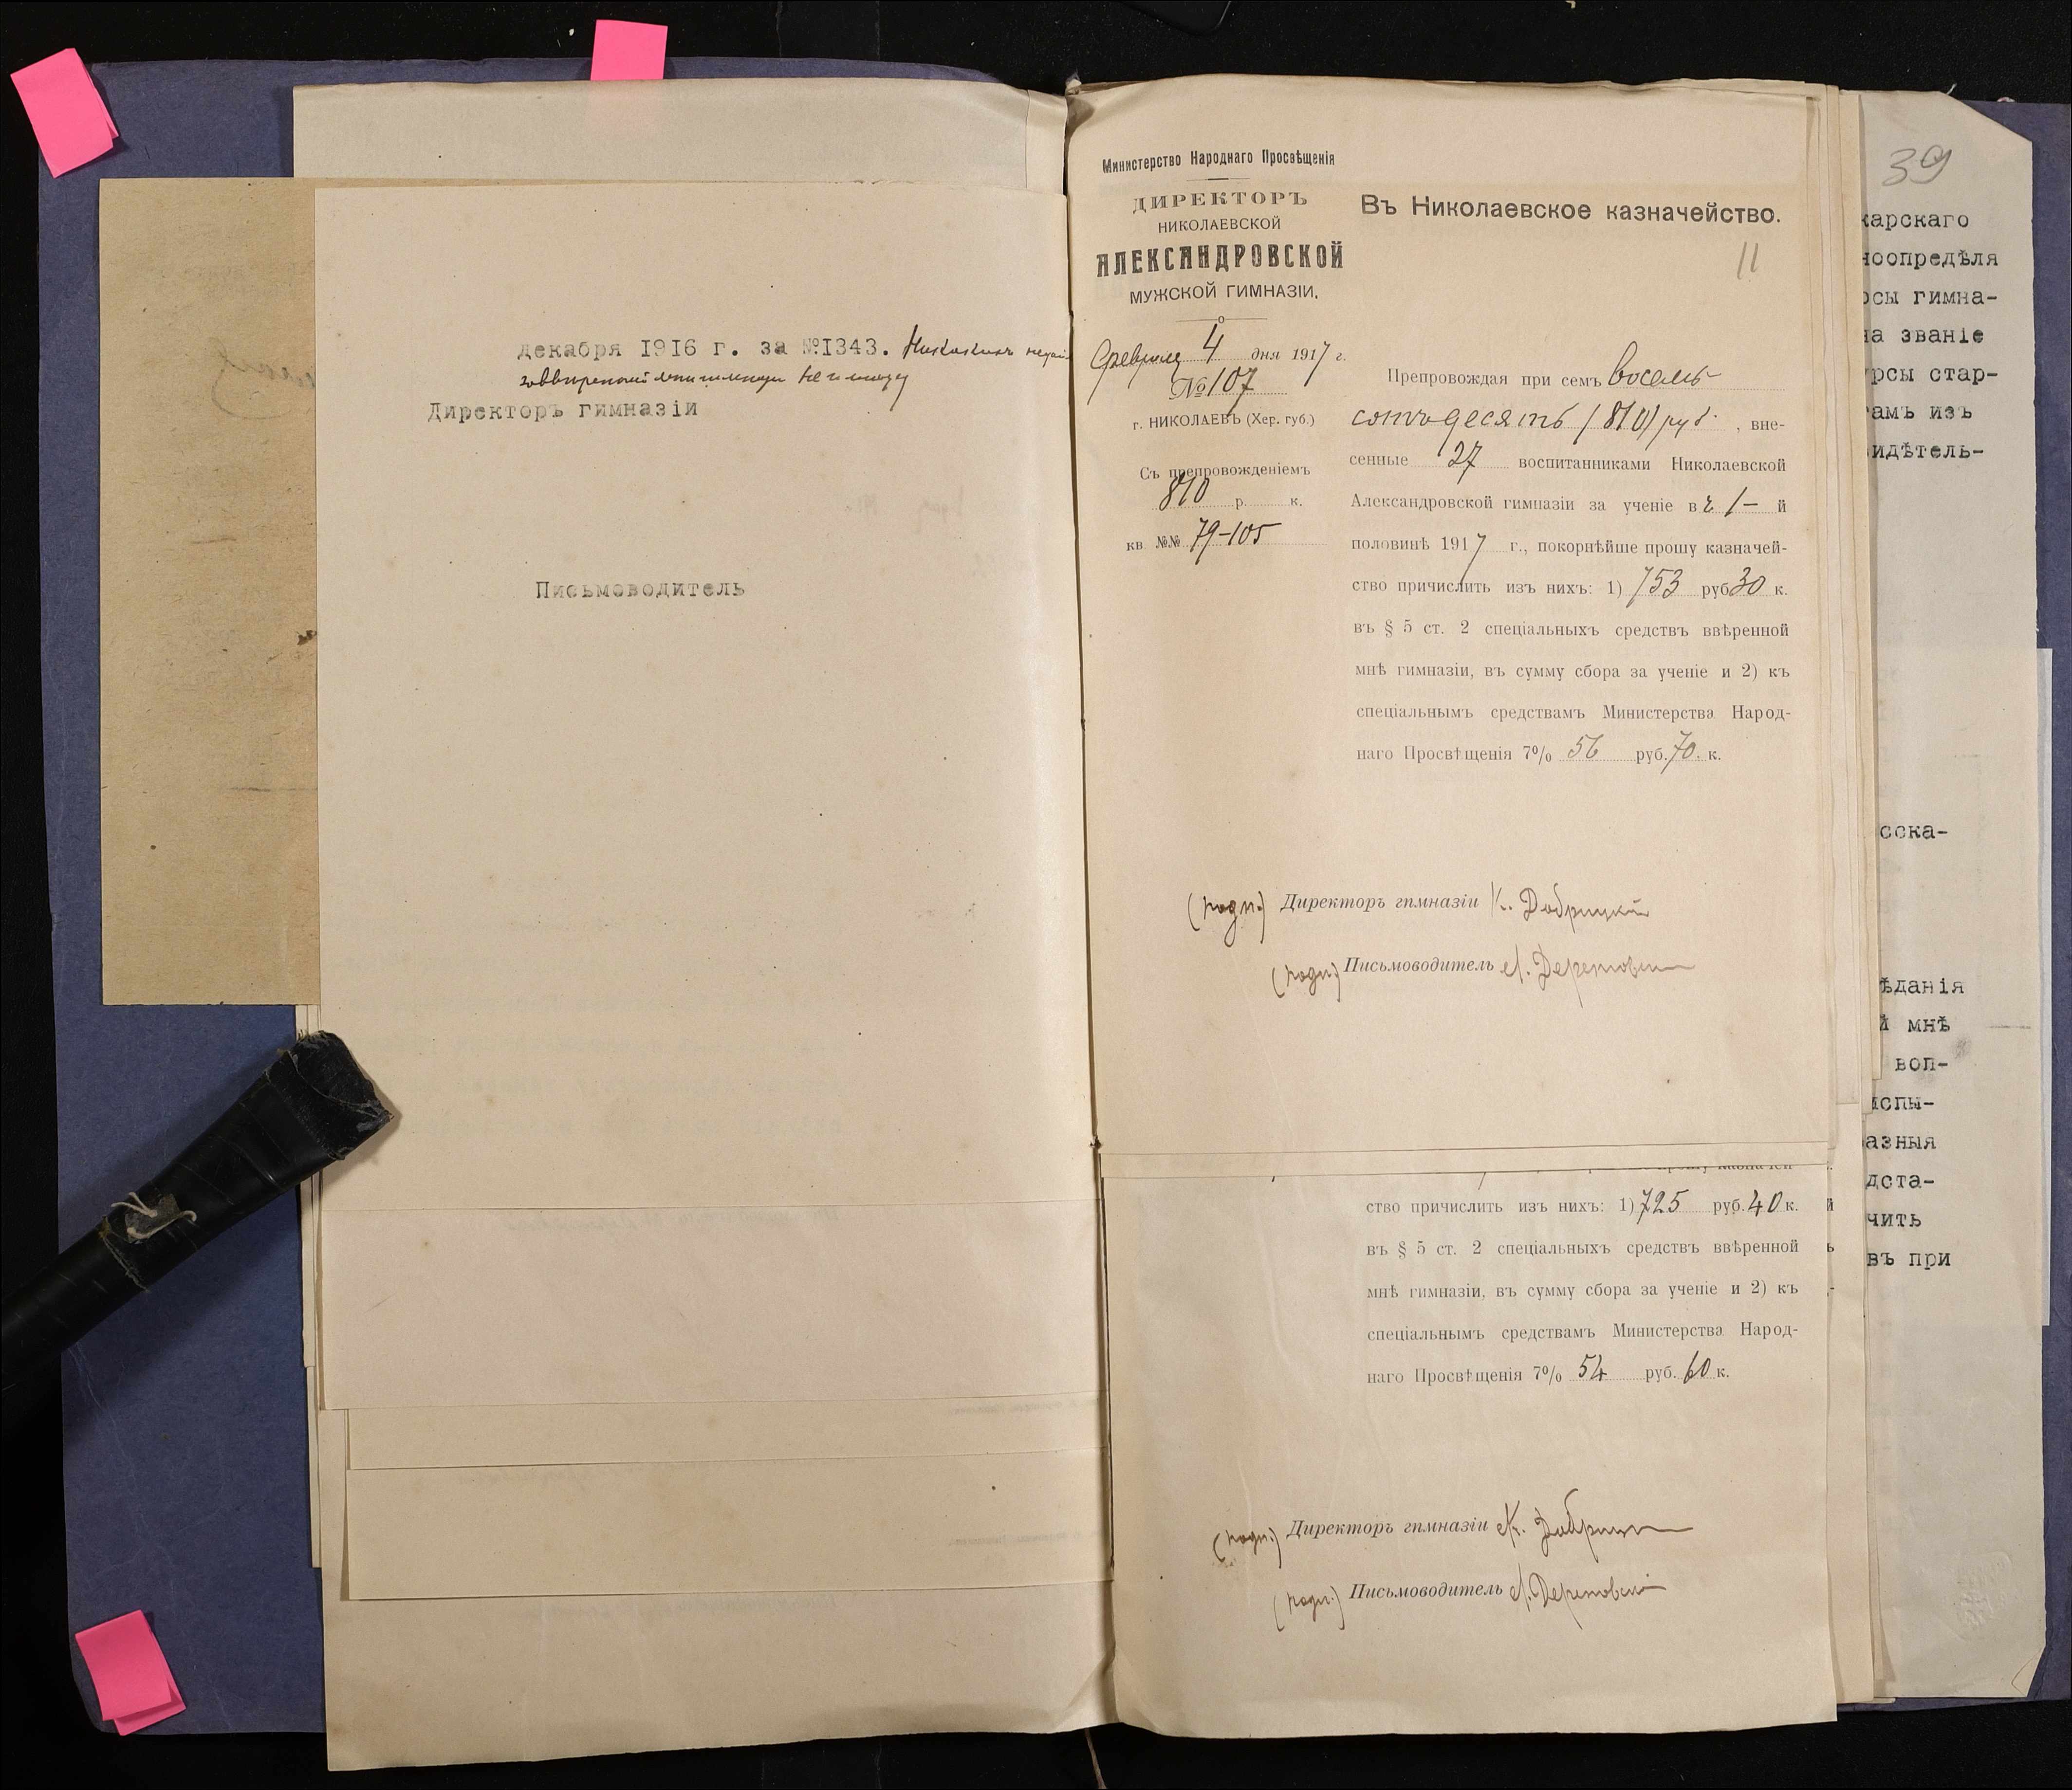 декабря 1916 г. за №1343. Никакихъ
не имѣю
Директоръ гимназіи
Письмоводитель
Министерство Народнаго Просвѣщенія
ДИРЕКТОРЪ
НИКОЛАЕВСКОЙ
АЛЕКСАНДРОВСКОЙ
МУЖСКОЙ ГИМНАЗІИ.
Февраля 4 дня 1917 г.
№ 107
г. НИКОЛАЕВЪ (Хер. губ.)
Съ препровожденіемъ
810 р. к.
кв. №№ 79-105
Въ Николаевское казначейство.
11
Препровождая при семъ восемь
сотъ десять (810) руб. , вне-
сенные 27 воспитанниками Николаевской
Александровской гимназіи за ученіе въ 1-й
половинѣ 1917 г., покорнѣйше прошу казначей-
ство причислить изъ нихъ: 1) 753 руб 30 к.
въ § 5 ст. 2 спеціальныхъ средствъ ввѣренной
мнѣ гимназіи, въ сумму сбора за ученіе и 2) къ
спеціальнымъ средствамъ Министерства Народ-
наго Просвѣщенія 7% 56 руб. 70. к.
(подп.) Директоръ гимназіи К. Добрицкій
(подп.) Письмоводитель
ство причислить изъ нихъ: 1) 725 руб. 40 к.
въ § 5 ст. 2 спеціальныхъ средствъ ввѣренной
мнѣ гимназіи, въ сумму сбора за ученіе и 2) къ
спеціальнымъ средствамъ Министерства Народ-
наго Просвѣщенія 7% 54 руб. 60 к.
(подп.) Директоръ гимназіи К.
(подп.) Письмоводитель
39
карскаго
ноопредѣля
рсы гимна-
на званіе
урсы стар-
тамъ изъ
видѣтель-
сска-
ѣданія
й мнѣ
воп-
испы-
разныя
дста-
чить
въ при